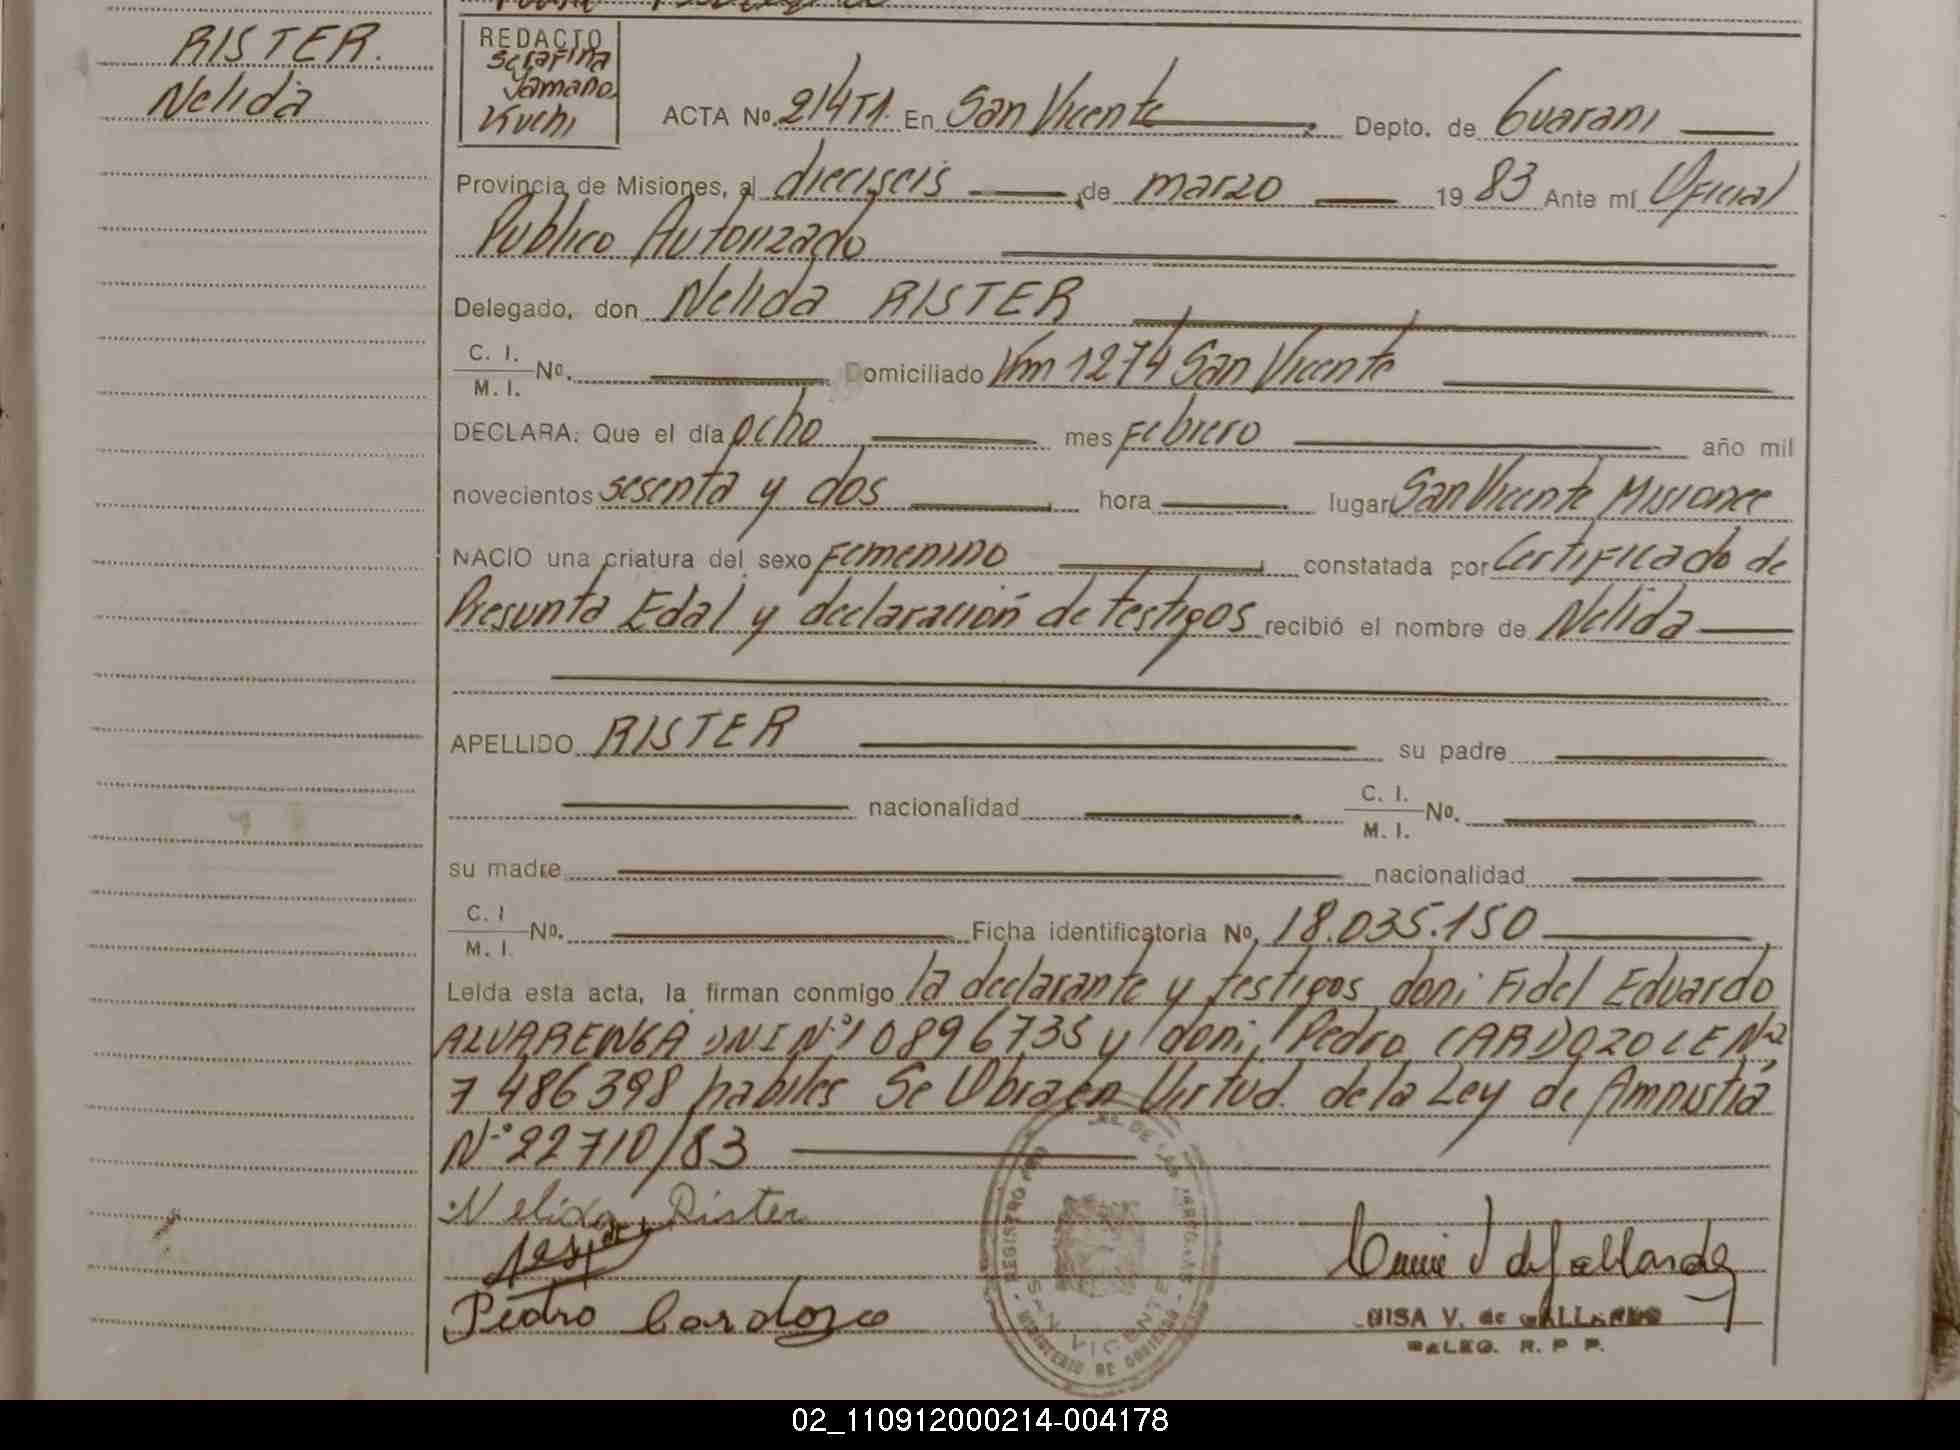 RISTER.
Nelida
REDACTO
Serafina
Yamano
Kuchi
ACTA Nº. 214T1. En San Vicente Depto. de Guarani
Provincia de Misiones, al dieciseis de marzo 1983 Ante mí Oficial
Publico Autorizado
Delegado, don Nelida RISTER
C. I.
M. I. Nº. Domiciliado Km 1274 San Vicente
DECLARA: Que el día ocho mes Febrero año mil
novecientos sesenta y dos hora lugar San Vicente Misiones
NACIO una criatura del sexo Femenino constatada por Certificado de
Presunta Edal y declaración de testigos recibió el nombre de Nelida
APELLIDO RISTER su padre
nacionalidad C. I.
M. I. Nº.
su madre nacionalidad
C. I
M. I. Nº. Ficha identificatoria Nº. 18.035.150
Leída esta acta, la firman conmigo la declarante y testigos don: Fidel Eduardo
ALVARENGA DNI Nº 10896735 y don: Pedro CARDOZO LE Nº
7486398 habiles Se Obra en Virtud de la Ley de Amnistia
Nº 22710/83
Nelida Rister
Pedro Cardozo
V. de GALLARDO
DELEG. R. P. P.
REGISTRO
SAN VICENTE
02_110912000214-004178